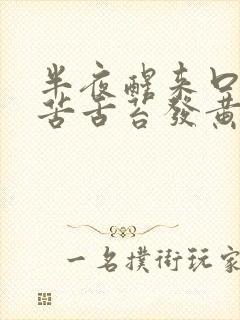 半夜醒来口
苦舌苔發黄
一名撲街玩家